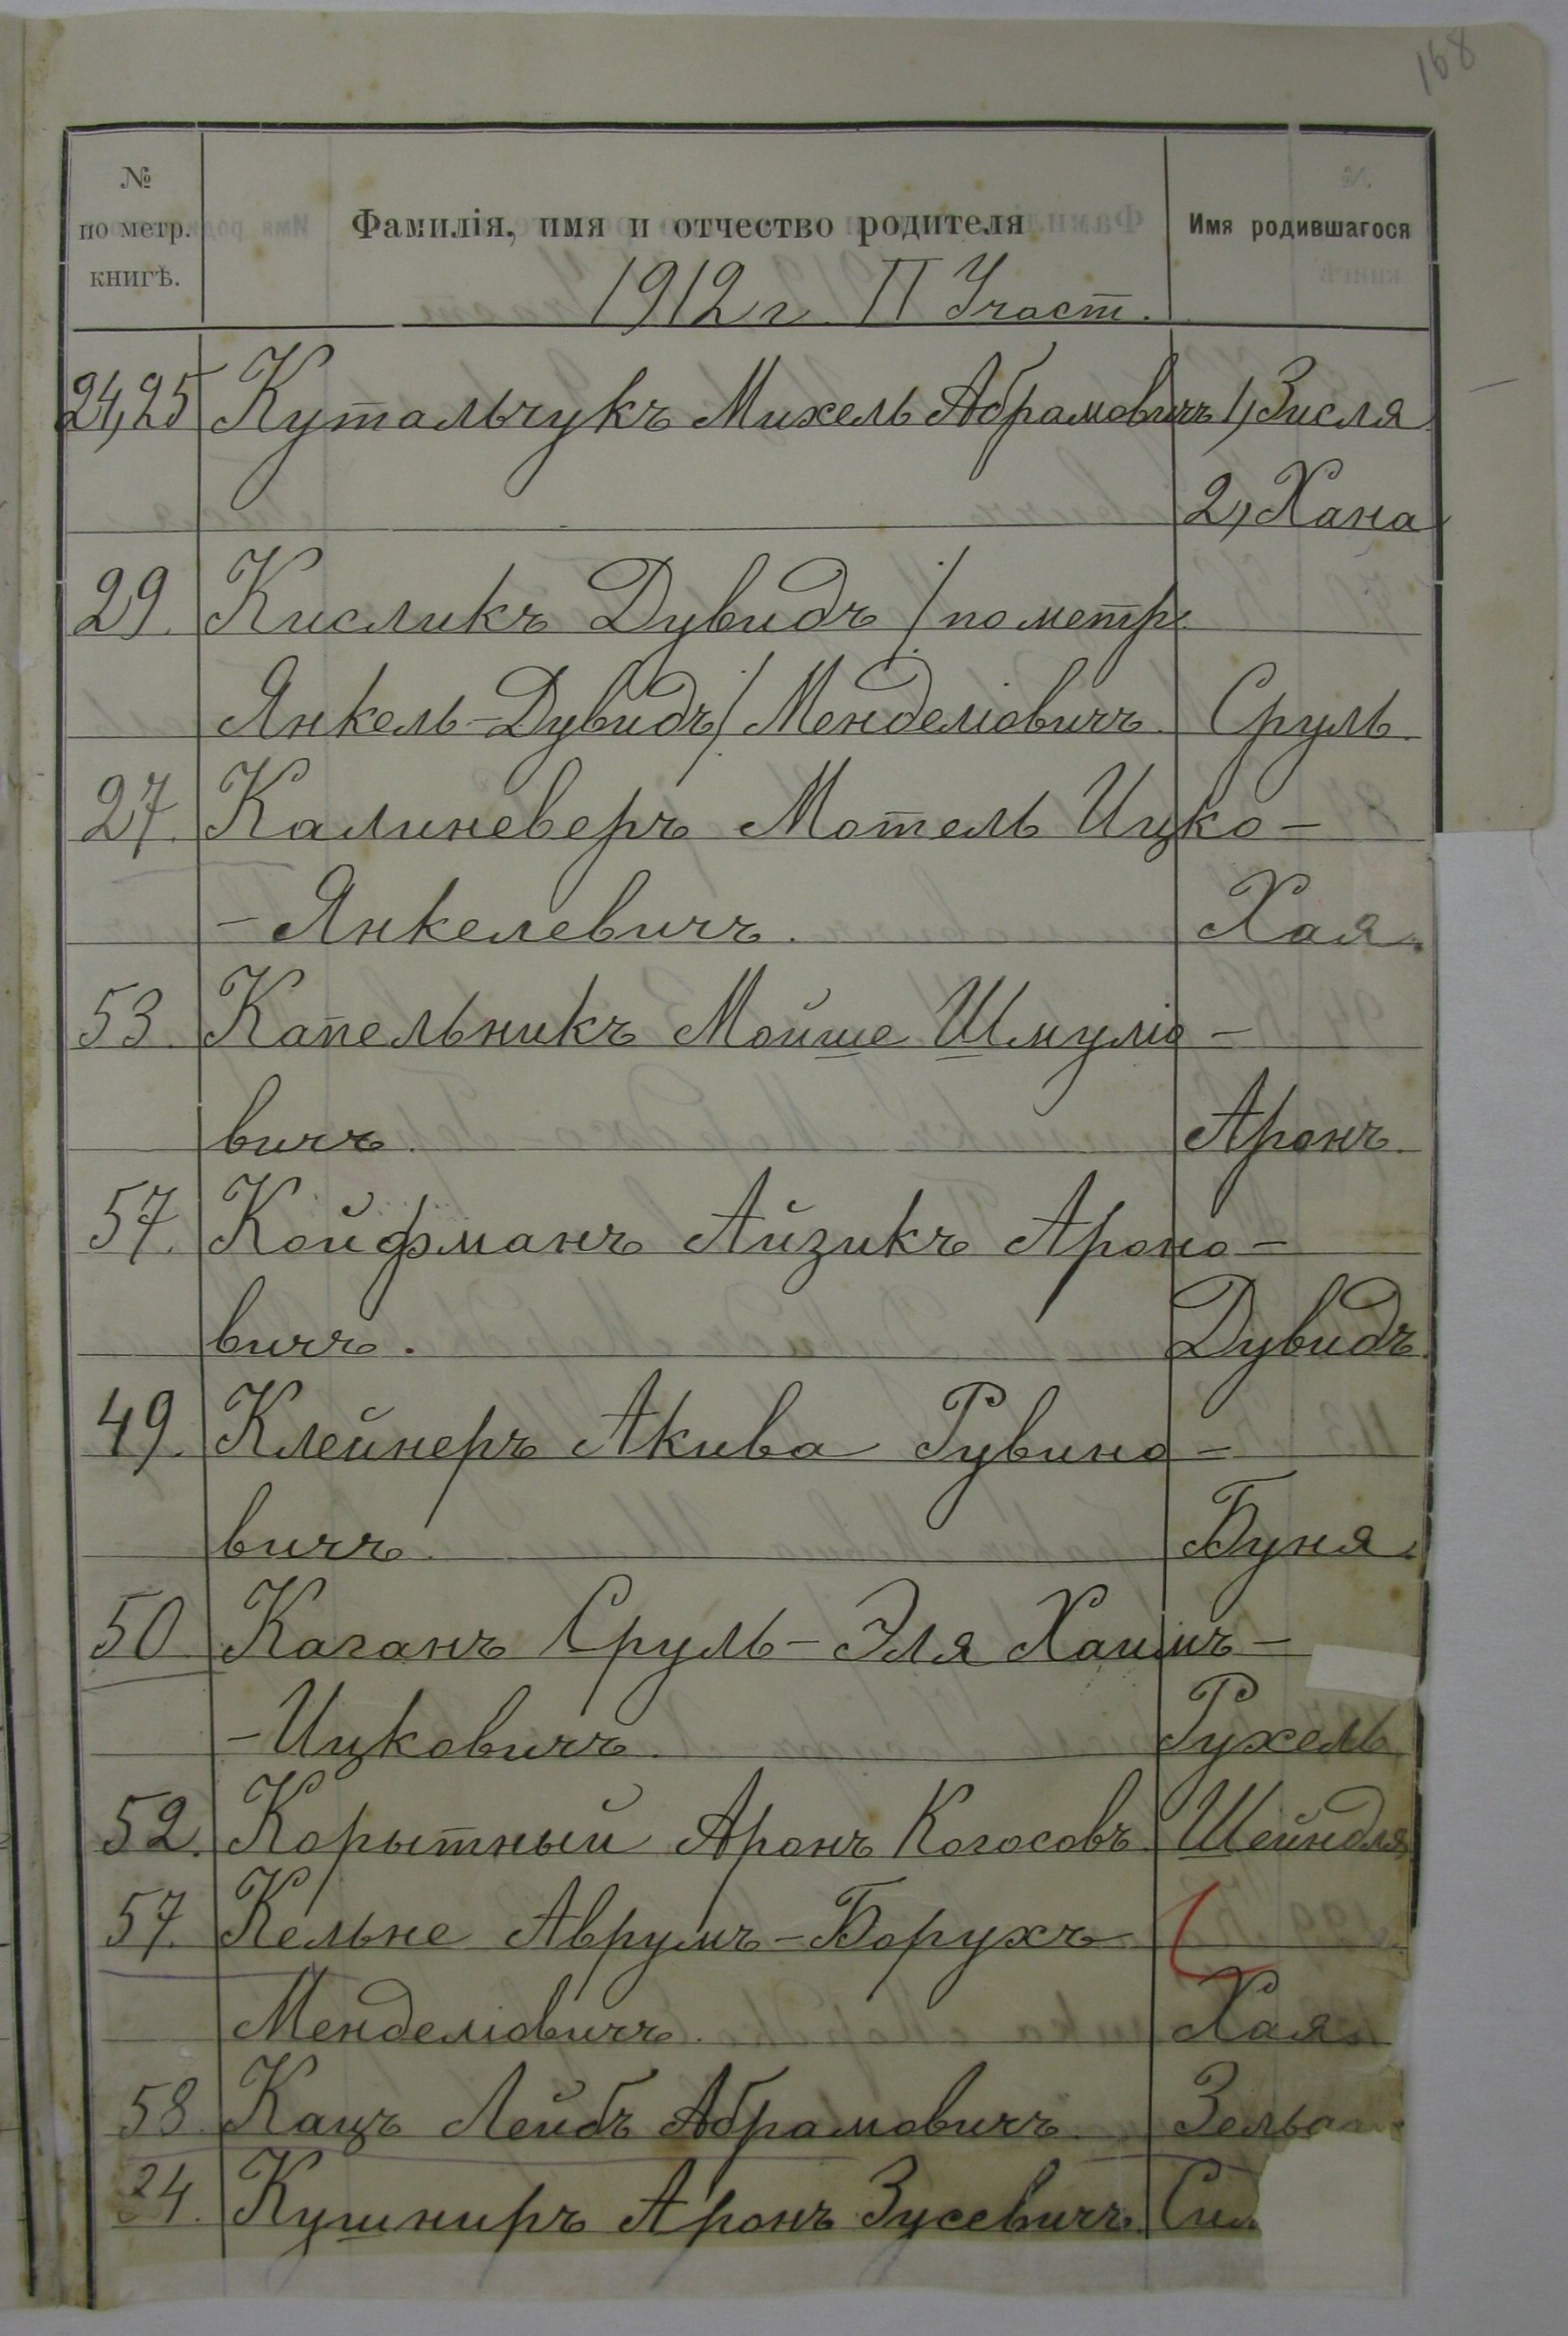 168
№
по метр.
книгѣ.
Фамилія, имя и отчество родителя
Имя родившагося
1912 г. II Участ.
24,25 Кутальчукъ Михель Абрамовичъ 1, Зисля
2, Хана
29. Кисликъ Дувидъ /по метр.
Янкель-Дувидъ/ Менделіовичъ. Сруль.
27. Калиневеръ Мотель Ицко-
-Янкелевичъ. Хая.
53. Капельникъ Мойше Шмуліо-
вичъ. Аронъ.
57. Койфманъ Айзикъ Ароно-
вичъ. Дувидъ.
49. Клейнеръ Акива Рувино-
вичъ. Буня.
50 Каганъ Сруль-Эля Хаимъ-
-Ицковичъ. Рухель
52. Корытный Аронъ Когосовъ. Шейндля
57. Кельне Аврумъ-Борухъ
Менделіовичъ. Хая.
58. Кацъ Лейбъ Абрамовичъ.
24. Кушниръ Аронъ Зусевичъ.